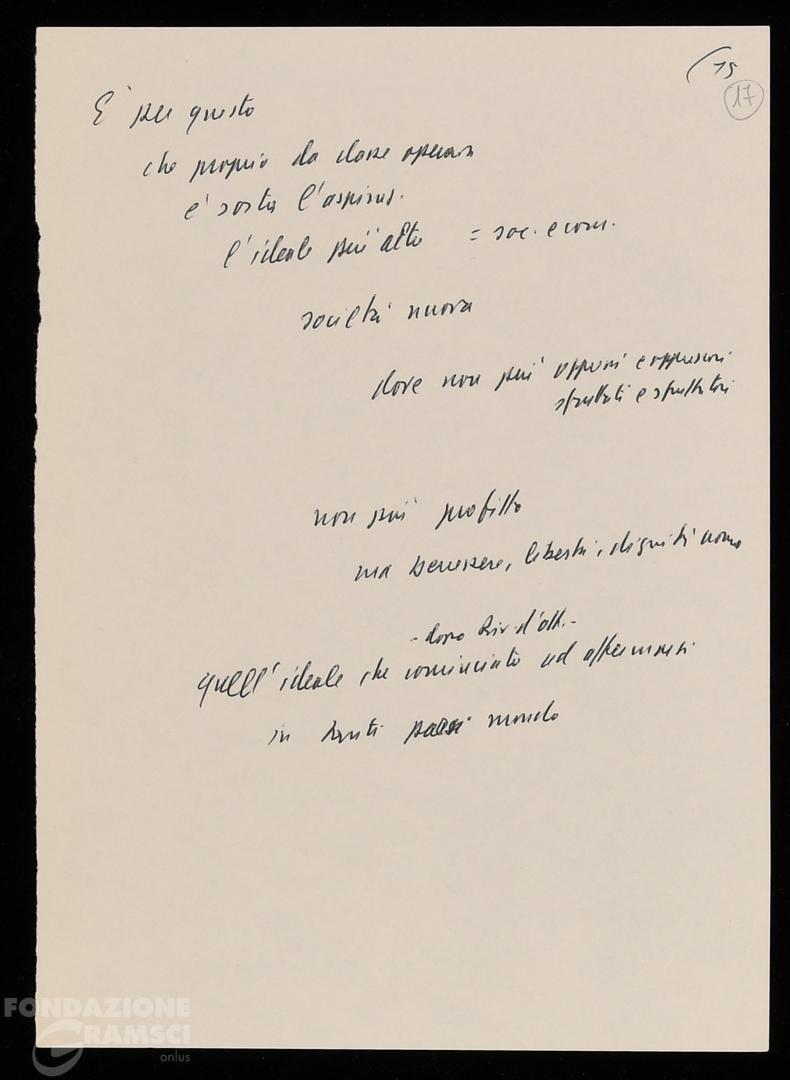 15
17
E' per questo
che proprio da classe operaia
è sorta l'aspiraz.
l'ideale più alto = soc. e com.
società nuova
dove non più oppressi e oppressori
sfruttati e sfruttatori
non più profitto
ma benessere, libertà, dignità uomo
- dopo Riv. d'ott. -
quell'ideale che cominciato ad affermarsi
in tanti paesi mondo
FONDAZIONE
GRAMSCI
onlus